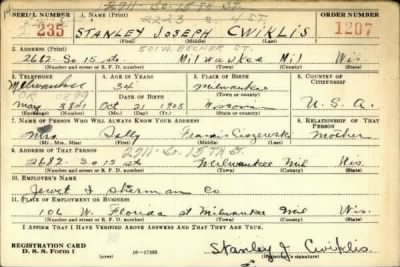 2711 - So. 15 TH St.
SERIAL NUMBER 1. NAME (Print) 2223 So. 4 ST. ORDER NUMBER
235 STANLEY JOSEPH CWIKLIS 1207
(First) (Middle) (Last)
2. ADDRESS (Print) 501 W. BECHER ST.
2682 - So 15 st. Milwaukee Mil Wis
(Number and street or R. F. D. number) (Town) (County) (State)
3. TELEPHONE 4. AGE IN YEARS 5. PLACE OF BIRTH 6. COUNTRY OF CITIZENSHIP
Milwaukee 34 Milwaukee
DATE OF BIRTH
Oct 21 1905 U. S. A.
(Exchange) (Number) (Mo.) (Day) (Yr.) (State or country)
7. NAME OF PERSON WHO WILL ALWAYS KNOW YOUR ADDRESS 8. RELATIONSHIP OF THAT PERSON
Mrs Sally Mother
(Mr., Mrs., Miss) (First) (Middle) (Last)
9. ADDRESS OF THAT PERSON 2711 - So. 15 TH St.
2682 - So 15 st Milwaukee Mil Wis.
(Number and street or R. F. D. number) (Town) (County) (State)
10. EMPLOYER'S NAME
Sherman Co
11. PLACE OF EMPLOYMENT OR BUSINESS
106 W. Florida st Milwaukee Mil Wis.
(Number and street or R. F. D. number) (Town) (County) (State)
I AFFIRM THAT I HAVE VERIFIED ABOVE ANSWERS AND THAT THEY ARE TRUE.
REGISTRATION CARD
D. S. S. Form 1 (over) 16-17105 Stanley J Cwiklis
(Registrant's signature)